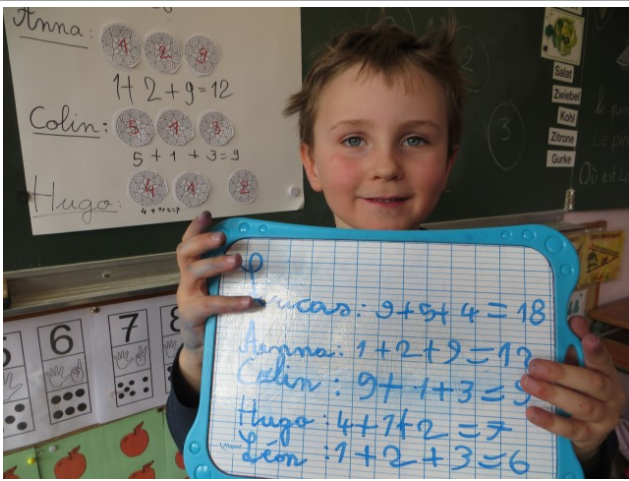 Anna:
1 2 9
1 + 2 + 9 = 12
Colin:
5 1 3
5 + 1 + 3 = 9
Hugo:
4 1 2
4 + 1 + 2 = 7
Salat
Zwiebel
Kohl
Zitrone
Gurke
3
Où est
6
7
8
Lucas: 9+5+4=18
Anna: 1+2+9=12
Colin: 9+1+3=9
Hugo: 4+1+2=7
Léon: 1+2+3=6